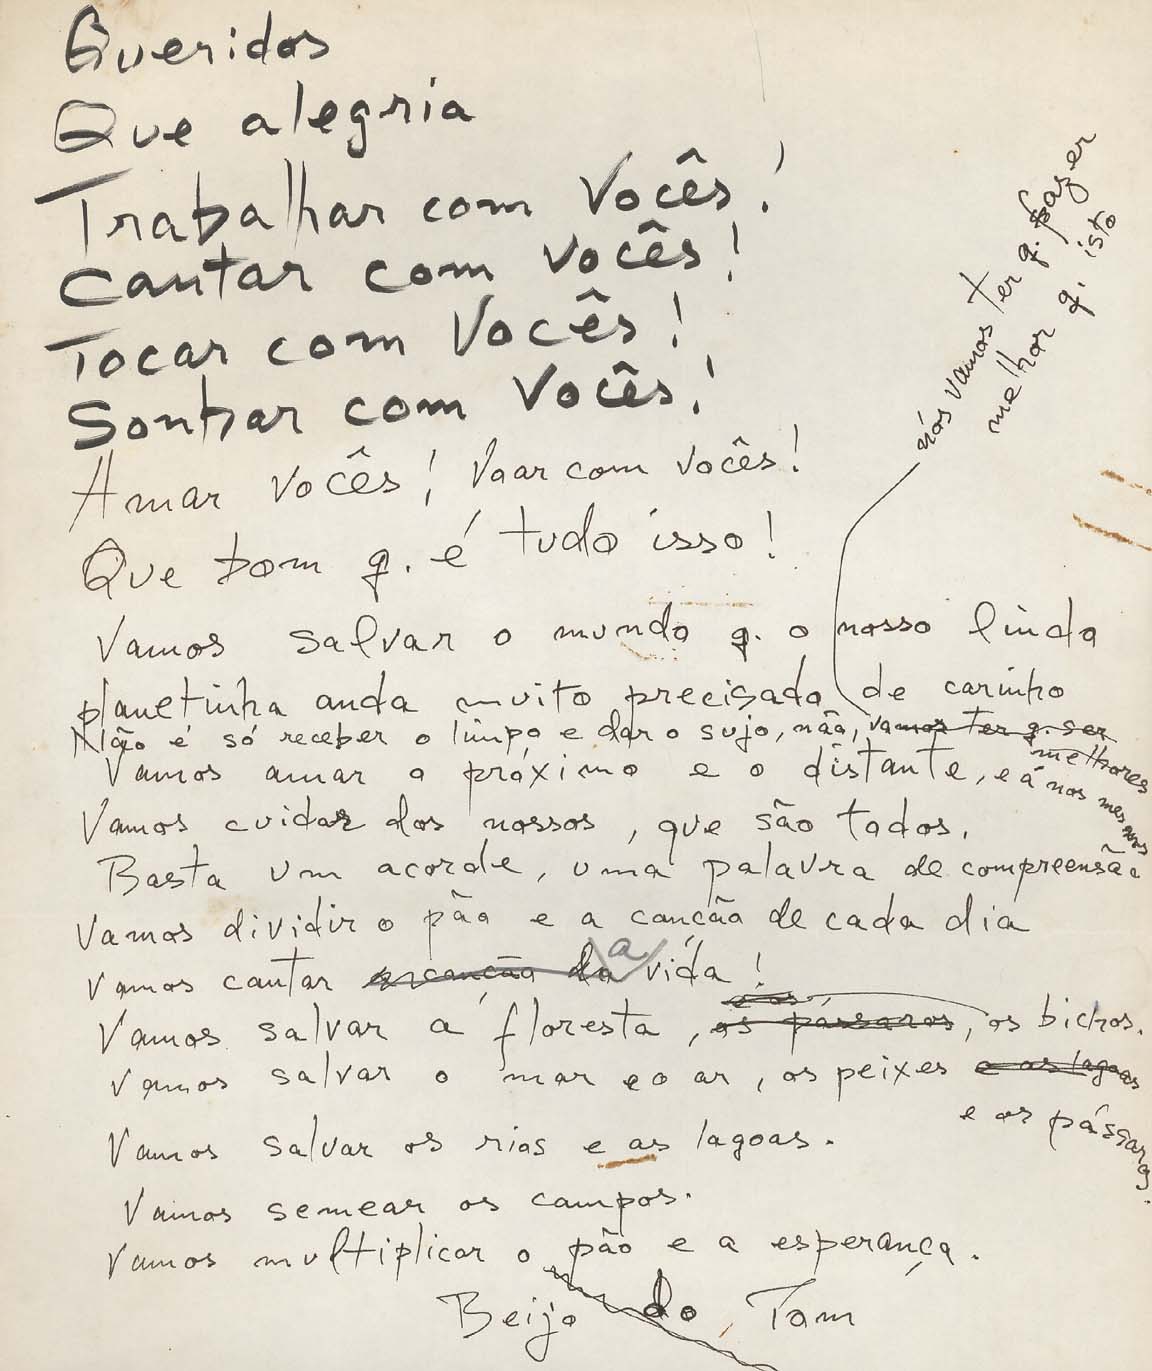 Queridos
Que alegria
Trabalhar com Vocês!
Cantar com Vocês!
Tocar com Vocês!
Sonhar com Vocês!
Amar Vocês! Voar com vocês!
Que bom q. é tudo isso!
Vamos salvar o mundo q. o nosso lindo
planetinha anda muito precisado de carinho
nós vamos ter q. fazer
melhor q. isto
Não é só receber o limpo e dar o sujo, não, vamos ter q. ser
melhores
Vamos amar o próximo e o distante, e á nos mesmos
Vamos cuidar dos nossos, que são todos.
Basta um acorde, uma palavra de compreensão
Vamos dividir o pão e a canção de cada dia
Vamos cantar a canção da a vida!
e os
Vamos salvar a floresta, os pássaros, os bichos.
Vamos salvar o mar e o ar, os peixes e as lagoas
e os pássaros.
Vamos salvar os rios e as lagoas.
Vamos semear os campos.
Vamos multiplicar o pão e a esperança.
Beijo do Tom